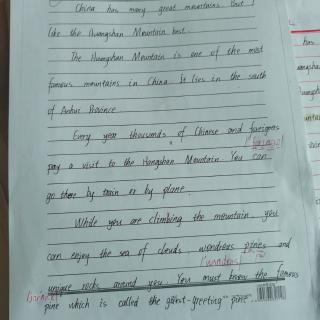 China has many great mountains. But I
like the Huangshan Mountain best.
The Huangshan Mountain is one of the most
famous mountains in China. It lies in the south
of Anhui Province.
Every year thousands of Chinese and foreigners
pay a visit to the Hangshan Mountain. You can
go there by train or by plane.
While you are climbing the mountain, you
can enjoy the sea of clouds, wondrous pines and
unique rocks around you. You must know the famous
pine which is called the guest-greeting pine